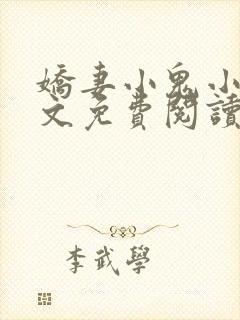 嬌妻小鬼小
文免費閱讀
李武學